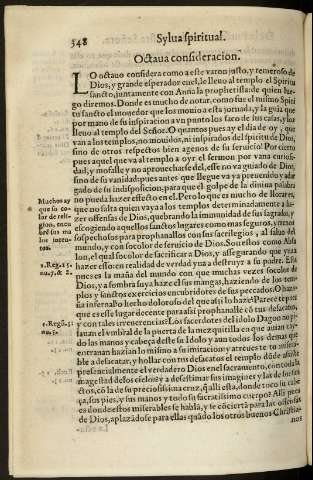 348
Sylua spiritual.
Octaua consideracion.
LO octauo considera como a este varon justo, y temeroso de
Dios, y grande esperador cuel, le lleuo al templo el Spiritu
sancto, juntamente con Anna la prophetissa: de quien lue-
go diremos. Donde es mucho de notar, como fue el mismo Spiri
tu sancto el mouedor que los mouio a esta jornada, y la guia que
por mano de su inspiracion a vn punto los saco de sus casas, y los
lleuo al templo del Señor. O quantos pues ay el dia de oy, que
van a los templos, no mouidos, ni inspirados del spiritu de Dios,
sino de otros respectos bien agenos de su seruicio! Por cierto
pues aquel que va al templo a oyr el sermon por vana curiosi-
dad, y mofalle y no aprouecharse del, esse no va guiado de Dios,
sino de su vanidad: pues antes que llegue va ya preuenido y
gado de su indisposicion, para que el golpe de la diuina palabra
no pueda hazer effecto en el. Pero lo que es mucho de llorares,
que no falta quien vaya a los templos determinadamente a ha-
zer offensas de Dios, quebrando la immunidad de sus sagrados, y
escogiendo aquellos sanctos lugares como mas seguros, y menos
sospechosos para prophanallos con sus sacrilegios, al salud del
mundo, y con socolor de seruicio de Dios. Sou estos como
lon, el qual socolor de sacrificar a Dios, y assegurando que yua
hazer esso: en realidad de verdad yua a destruyr a su poder. Esta
pues es la maña del mundo con que muchas vezes socolor de
Dios, y a sombra suya haze el sus mangas, haziendo de los tem-
plos y sanctos exercicios encubridores de sus peccados. O haza-
ña infernal! o hecho doloroso del que assi lo haze! Parece te pues
que es esse lugar decente para assi prophanalle cō tus desacatos,
y con tales irreuerencias? Los sacerdotes del idolo Dagon no pi-
sauan el vmbral de la puerta de la mezquitilla en que auian cay-
do las manos y cabeça deste su Idolo y aun todos los demas que
entrauan hazian lo mismo a su imitacion: y atreues te tu misera-
ble a desacatar, y hollar con tus desacatos el templo dōde assiste
presencialmente el verdadero Dios en el sacramento, con toda la
magestad de los cielos: y a desestimar sus imagines y las de sus sanc
ctos, cō la de su preciosissima cruz, q̄ alli esta, donde toco su cabe
ça, sus pies, y sus manos y todo su sacratissimo cuerpo? Alli pues
es donde estos miserables se habla, y se cōcierta para las offensas
de Dios, aplazādose para ellas quādo los otros buenos Christia-
nos
Muchos ay
que so co-
lor de reli-
gion, encu
brē sus ma
los inten-
tos.
1. Reg. 15.
nu. 7. & 2.
1. Reg. 5.
nu. 5.